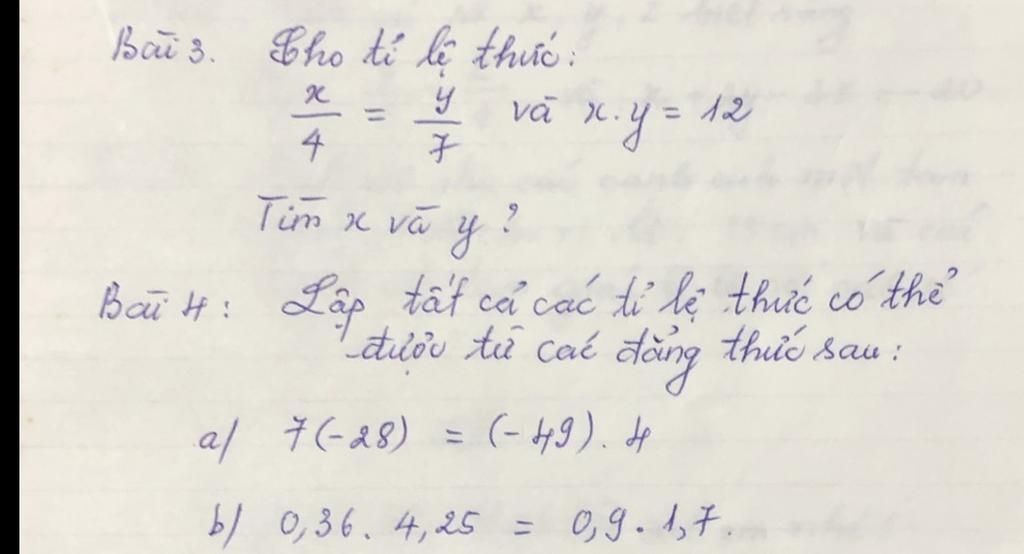 Bài 3. Cho tỉ lệ thức:
x/4 = y/7 và x.y = 12
Tìm x và y?
Bài 4: Lập tất cả các tỉ lệ thức có thể
được từ các đẳng thức sau:
a/ 7(-28) = (-49).4
b/ 0,36. 4,25 = 0,9.1,7.